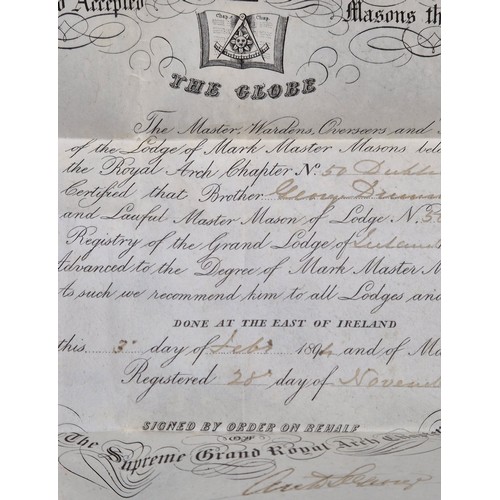 d Accepted Masons th
Chap. Chap.
THE GLOBE
The Master, Wardens, Overseers and
of the Lodge of Mark Master Masons belo
the Royal Arch Chapter No. 50 Dublin
Certified that Brother George
and Lawful Master Mason of Lodge N. 50
Registry of the Grand Lodge of Ireland
Advanced to the Degree of Mark Master M
As such we recommend him to all Lodges and
DONE AT THE EAST OF IRELAND
this 3d day of Feby 1894 and of Ma
Registered 28 day of Novemb
SIGNED BY ORDER ON BEHALF
OF
The Supreme Grand Royal Arch Chapter